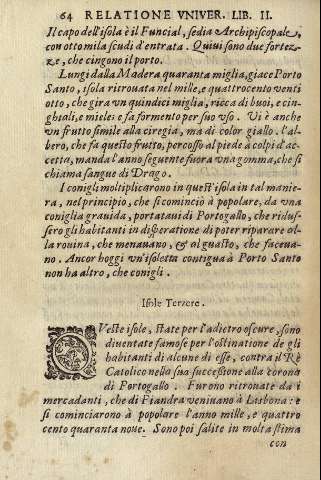 64 RELATIONE VNIVER. LIB. II.
Il capo dell'isola è il Funcial, sedia Archipiscopale,
con otto mila scudi d'entrata. Quiui sono due fortez-
ze, che cingono il porto.
Lungi dalla Madera quaranta miglia, giace Porto
Santo, isola ritrouata nel mille, e quattrocento venti
otto, che gira vn quindici miglia, ricca di buoi, e cin-
ghiali, e miele: e fa formento per suo vso. Vi è anche
vn frutto simile alla ciregia, ma di color giallo. l'al-
bero, che fa questo frutto, percosso al piede à colpi d'ac-
cetta, manda l'anno seguente fuora vna gomma, che si
chiama sangue di Drago.
I conigli moltiplicarono in quest'isola in tal manie-
ra, nel principio, che si cominciò à popolare, da vna
coniglia grauida, portataui di Portogallo, che ridus-
sero gli habitanti in disperatione di poter riparare al-
la rouina, che menauano, & al guasto, che faceua-
no. Ancor hoggi vn'isoletta contigua à Porto Santo
non ha altro, che conigli.
Isole Terzere.
QVeste isole, state per l'adietro oscure, sono
diuentate famose per l'ostinatione de gli
habitanti di alcune di esse, contra il Rè
Catolico nella sua successione alla corona
di Portogallo. Furono ritrouate da i
mercadanti, che di Fiandra veniuano à Lisbona: e
si cominciarono à popolare l'anno mille, e quattro
cento quaranta noue. Sono poi salite in molta stima
con